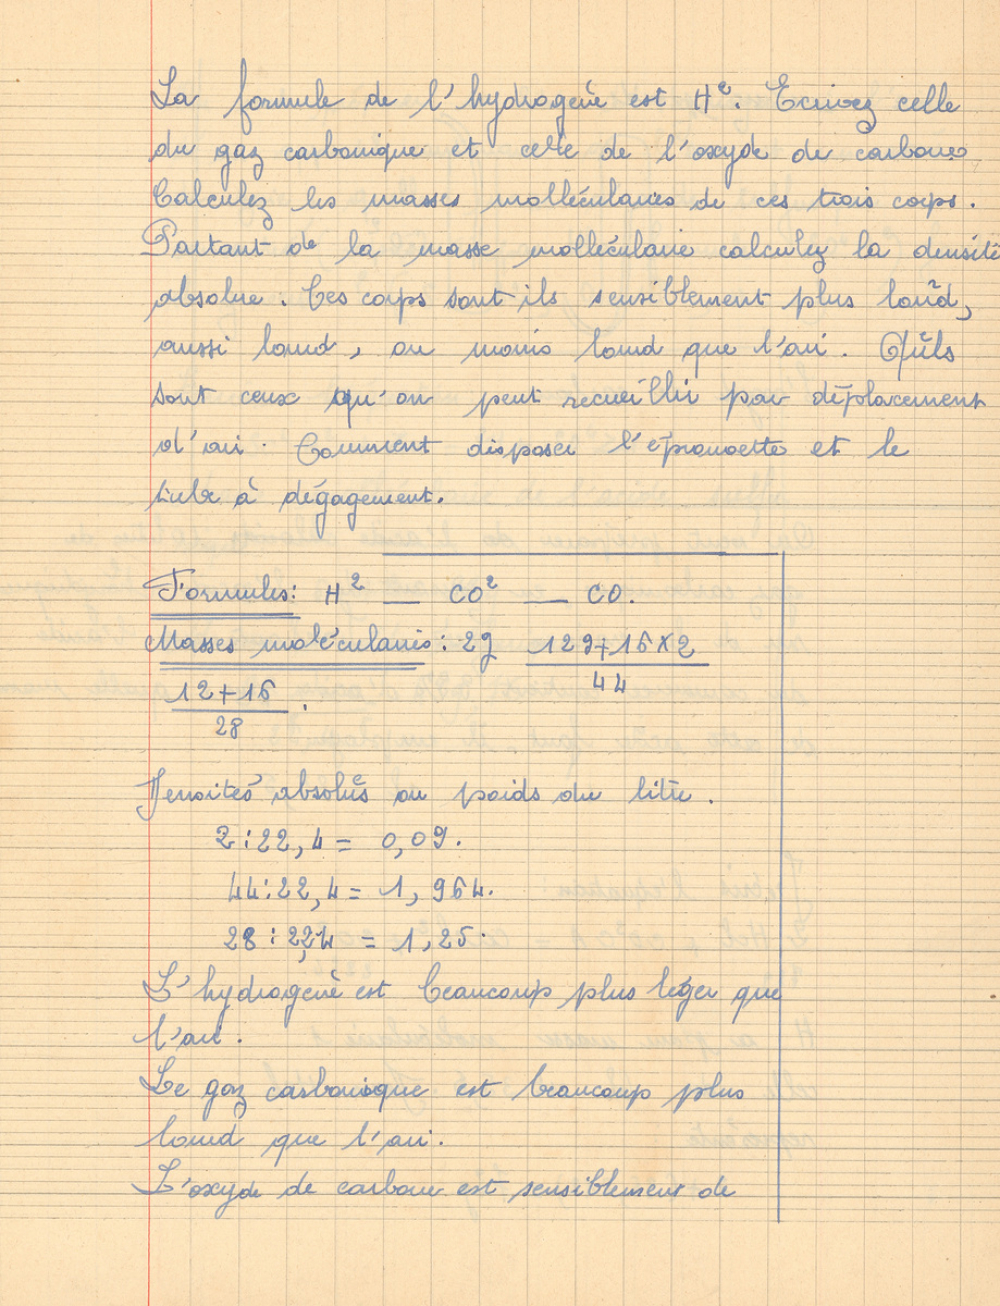 La formule de l'hydrogène est H². Ecrivez celle
du gaz carbonique et celle de l'oxyde de carbone
Calculez les masses molléculaires de ces trois corps.
Partant de la masse molléculaire calculez la densité
absolue. Ces corps sont ils sensiblement plus lourd,
aussi lourd, ou moins lourd que l'air. Quels
sont ceux qu'on peut recueillir par déplacement
d'air. Comment disposer l'éprouvette et le
tube à dégagement.
Formules: H² — CO² — CO.
Masses moléculaires: 2g 12g+16X2
44
12+16.
28
Densités absolues ou poids du litre.
2:22,4 = 0,09.
44:22,4 = 1,964.
28:22,4 = 1,25.
L'hydrogène est beaucoup plus léger que
l'air.
Le gaz carbonique est beaucoup plus
lourd que l'air.
L'oxyde de carbone est sensiblement de